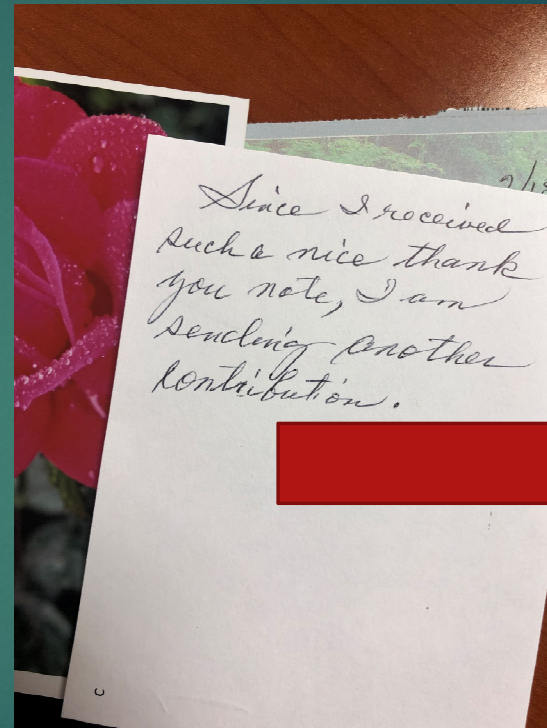 Since I received
such a nice thank
you note, I am
sending another
contribution.